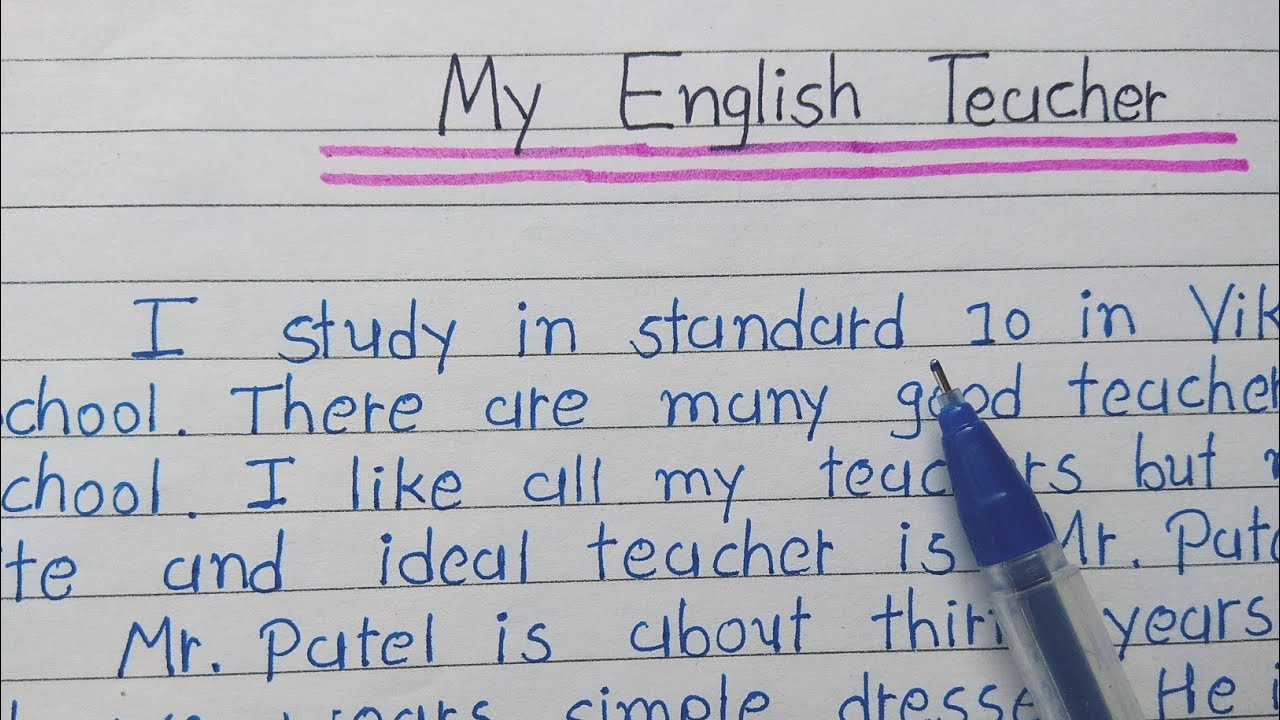 My English Teacher
I study in standard 10 in Vik
chool. There are many good teacher
chool. I like all my teachers but
te and ideal teacher is Mr. Pat
Mr. Patel is about years
simple dresse He